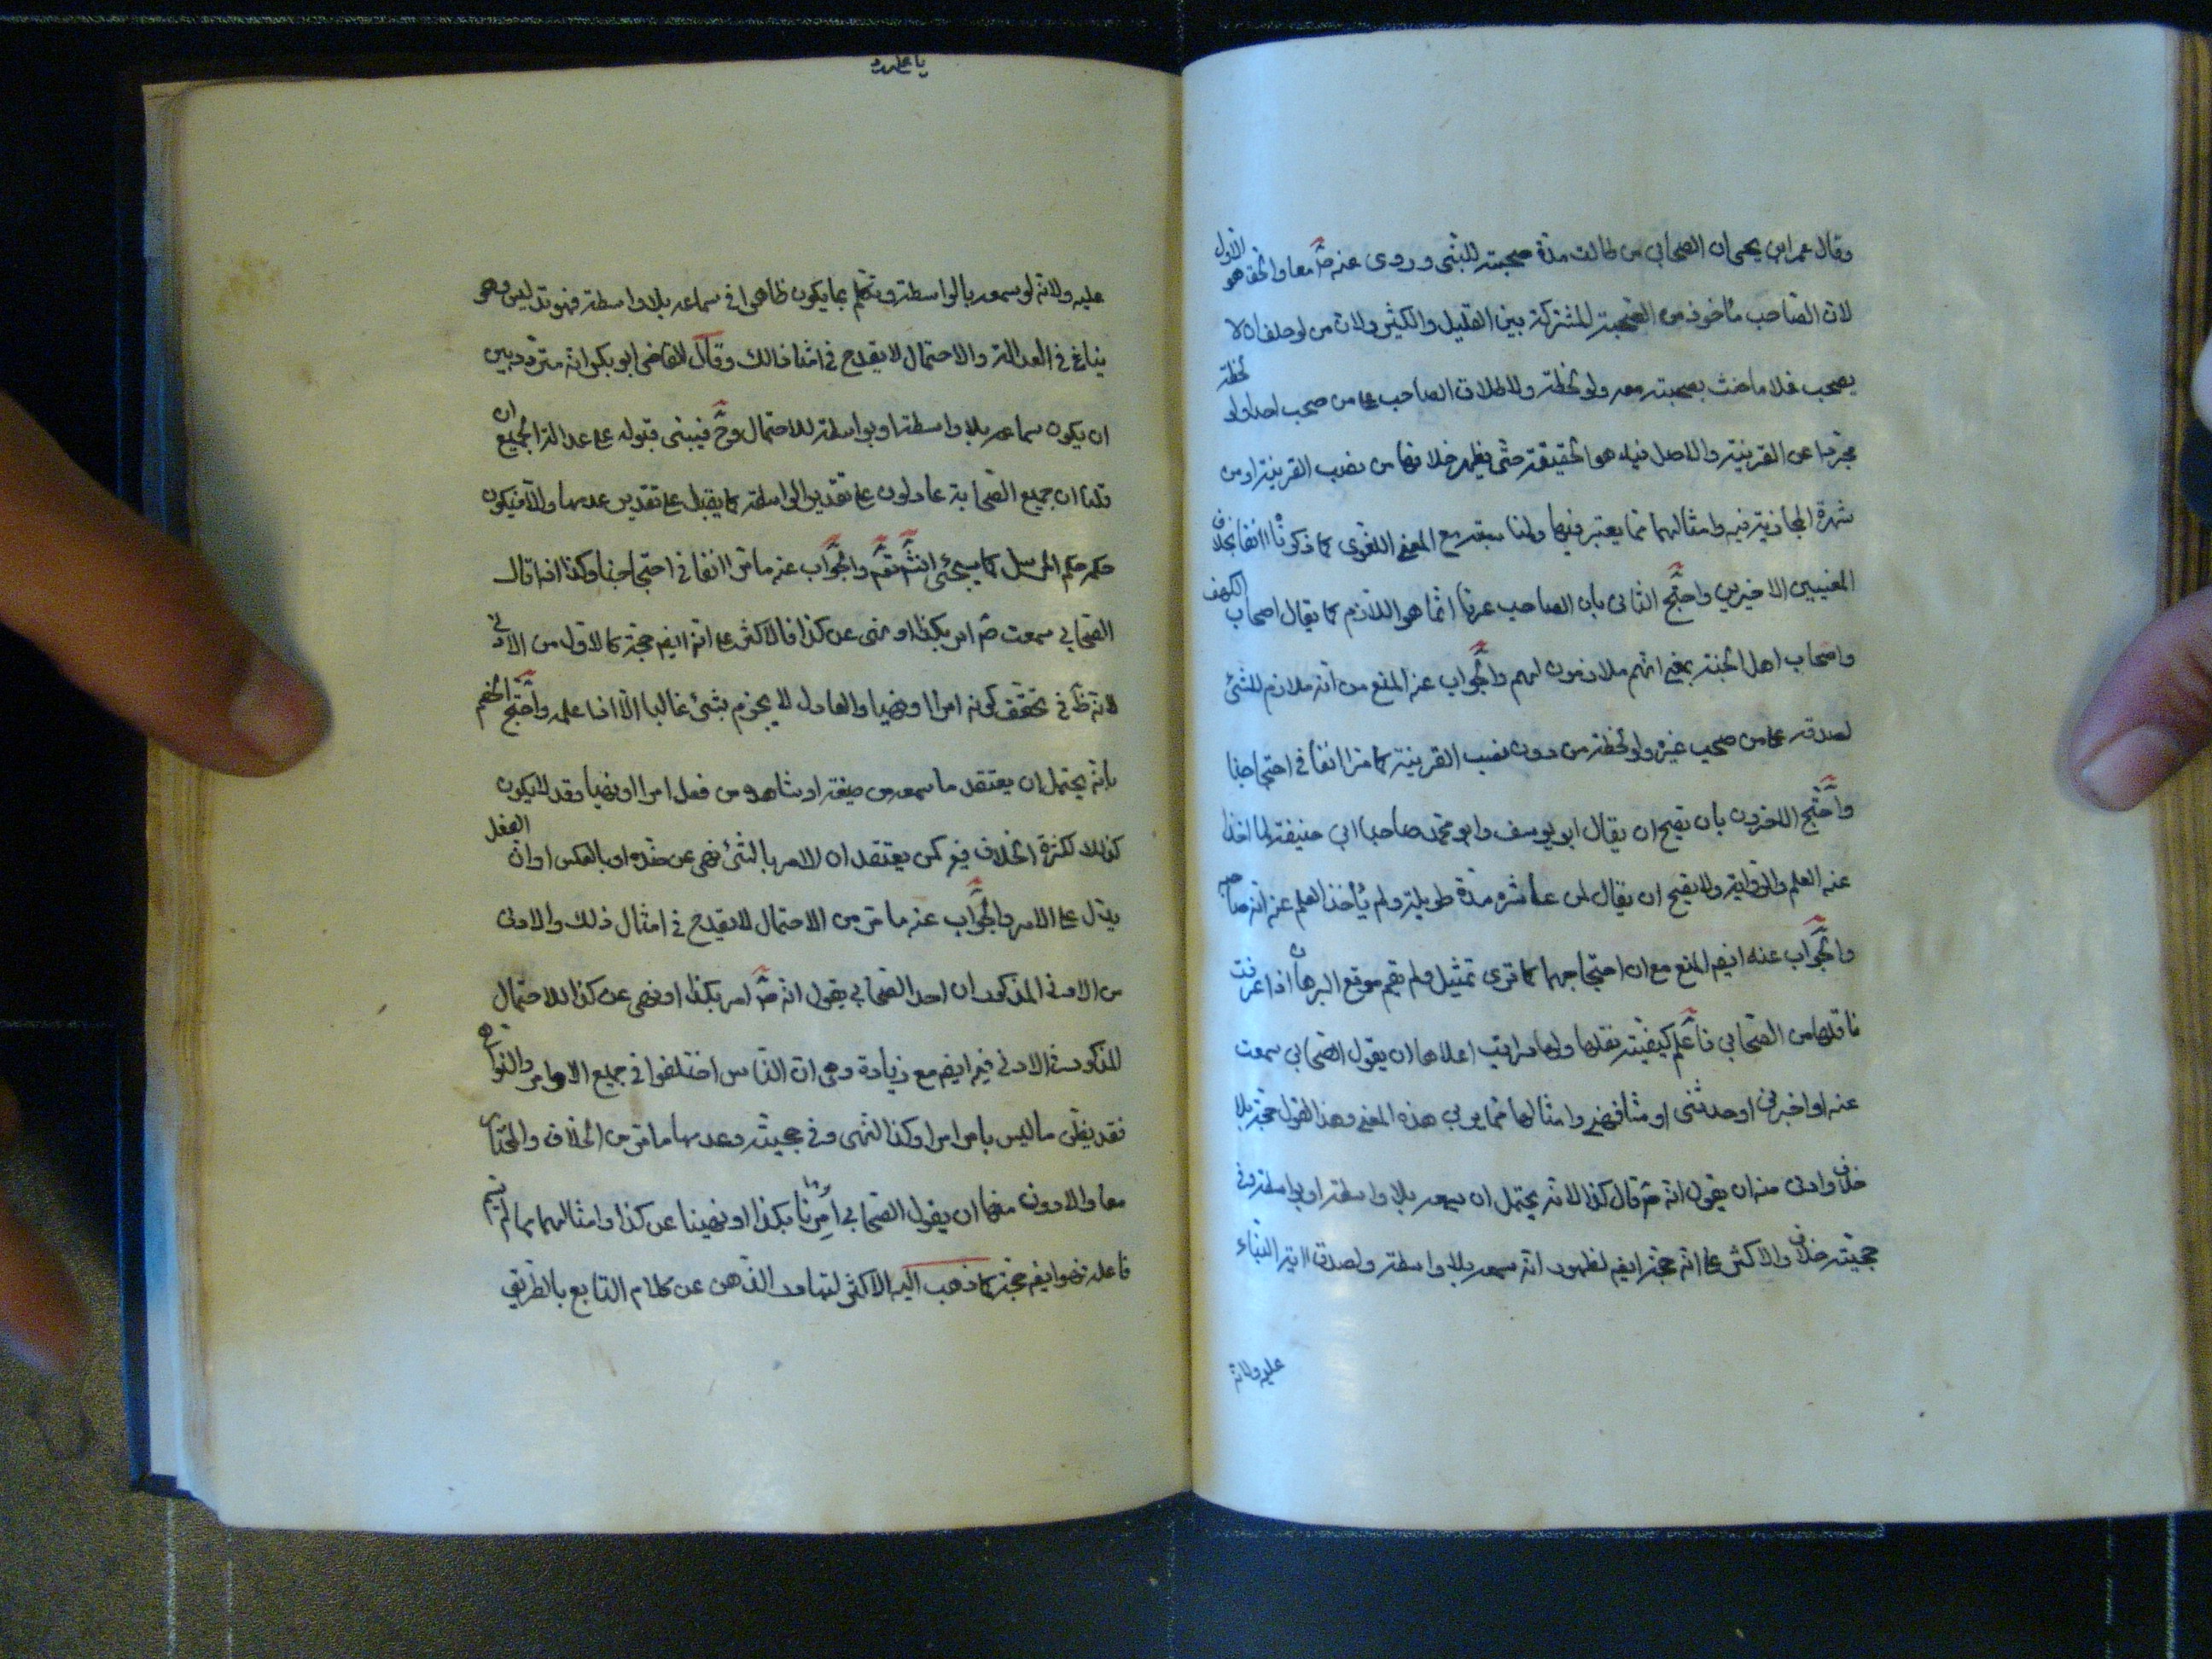 وقال عمر ابن يحيى ان الصحابي من طالت مدة صحبته للنبي وروى عنه صم معا والحق هو الاول
لان الصاحب مأخوذ من الصحبة المشتركة بين القليل والكثير ولان من لو حلف ان لا
يصحب فلاما حنث بصحبته معه ولو لحظة ولاطلاق الصاحب على من صحب احدا ولو لحظة
مجردا عن القرينة والاصل فيه هو الحقيقة حتى يظهر خلافها من نصب القرينة او من
شهرة المجازية فيه وامثالهما مما يعتبر فيها ولنا مع المعنى اللغوى كما ذكرنا انفا بخلاف
المعنيين الاخيرين واحتج الثانى بان الصاحب عرفا انما هو اللازم كما يقال اصحاب الكهف
واصحاب اهل الجنة بمعنى انهم ملازمون لهم والجواب عنه المنع من انه ملازم للشئ
لصدقه على من صحب غيره ولو لحظة من دون نصب القرينة كما مر انفا فى احتجاجنا
واحتج الاخرون بان يصح ان يقال ابو يوسف وابو محمد صاحبا ابي حنيفة لما اخذا
عنه العلم والرواية ولا يصح ان يقال لمن عاشره مدة طويلة ولم يأخذ العلم عنه انه صاحبه
والجواب عنه ايضا المنع مع ان احتجاجهما كما ترى تمثيل ولم يقم موقع البرهان اذا عرفت
ناقلها من الصحابي فاعلم كيفية نقلها ولها مراتب اعلاها ان يقول الصحابى سمعت
عنه او اخبرنى او حدثنى او شافهنى وامثالها مما يؤدى هذه المعنى وهذا القول حجة بلا
خلاف وادنى منه ان يقول انه صم قال كذا لانه يحتمل ان يسمعه بلا واسطة او بواسطة وفى
حجيته خلاف والاكثر على انه حجة ايضا لظهور انه سمعه بلا واسطة ولصدق اية النباء
عليه ولانه
عليه ولانه لو سمعه بالواسطة وتكلم بما يكون ظاهرا فى سماعه بلا واسطة فهو تدليس وهو
ينافى فى العدالة والاحتمال لا يقدح فى امثال ذلك وقال القاضى ابو بكر انه متردد بين
ان يكون سماعه بلا واسطة او بواسطة للاحتمال وح فيبنى قبوله على عدالة الجميع ان
قلنا ان جميع الصحابة عادلون على تقدير الواسطة كما يقبل على تقدير عدمها والا فيكون
حكمه حكم المرسل كما سيجئ انش تعم والجواب عنه ما مر انفا فى احتجاجنا وكذا اذا قال
الصحابي سمعت صم امر بكذا او نهى عن كذا فالاكثر على انه ايضا حجة كالاول من الادنى
لانه ظ فى تحقق كونه امرا او نهيا والعادل لا يجزم بشئ غالبا الا اذا علمه واحتج الخصم
بانه يحتمل ان يعتقد ما سمعه من صيغة او شاهده من فعل امرا او نهيا وقد لا يكون
كذلك لكثرة الخلاف فيه كمن يعتقد ان الامر بالشئ نهى عن ضده او بالعكس او ان الفعل
يدل على الامر والجواب عنه ما مر من الاحتمال لا يقدح فى امثال ذلك والادنى
من الادنى المذكور ان احد الصحابي يقول انه صم امر بكذا او نهى عن كذا للاحتمال
المذكور فى الادنى فيه ايضا مع زيادة وهى ان الناس اختلفوا فى جميع الاوامر والنواهى
فقد يظن ما ليس بامر امرا وكذا النهى وفى حجيته وعدمها ما مر من الخلاف والمختار
معا والادون منها ان يقول الصحابي امرنا بكذا او نهينا عن كذا وامثالهما بما لم يسم
فاعله فهو ايضا حجة كما ذهب اليه الاكثر لتبادر الذهن عن كلام التابع بالطريق